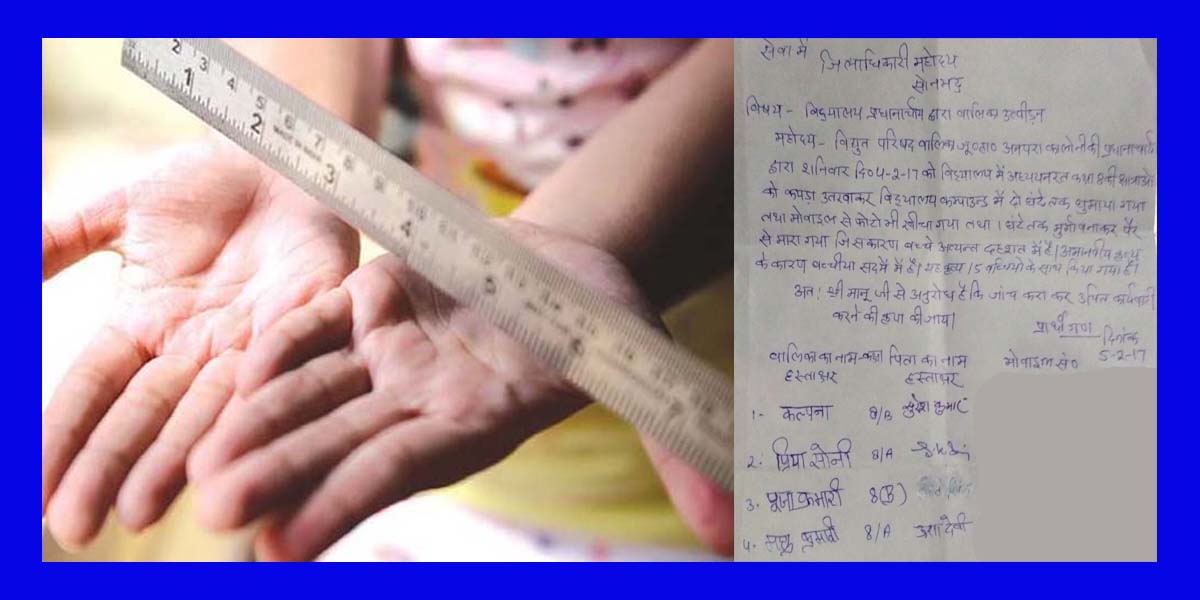 2 3 4 5 6 7 8
1 2 3 4 5 6
सेवा में
जिलाधिकारी महोदय
सोनभद्र
विषय - विद्यालय प्रधानाचार्या द्वारा बालिका उत्पीड़न
महोदय - विद्युत परिषद बालिका जू०हा० अनपरा कालोनी की प्रधानाचार्या
द्वारा शनिवार दि04-2-17 को विद्यालय में अध्ययनरत कक्षा 8 की छात्राओं
को कपड़ा उतरवाकर विद्यालय कम्पाउन्ड में दो घंटे तक घुमाया गया
तथा मोबाइल से फोटो भी खींचा गया तथा 1 घंटे तक मुर्गा बनाकर पैर
से मारा गया जिस कारण बच्चे अत्यन्त दहशत में है। अमानवीय कृत्य
के कारण बच्चीया सदमें में है। यह कृत्य 15 बच्चियों के साथ किया गया है।
अतः श्री मान् जी से अनुरोध है कि जांच करा कर उचित कार्यवाही
करने की कृपा की जाय।
प्रार्थी गण
दिनांक
5-2-17
बालिका का नाम-कक्षा पिता का नाम मोबाइल सं०
हस्ताक्षर हस्ताक्षर
1- कल्पना 8/B सुरेश कुमार
2. प्रिया सोनी 8/A
3. पूजा कुमारी 8(B)
4. कुमारी 8/A उषा देवी